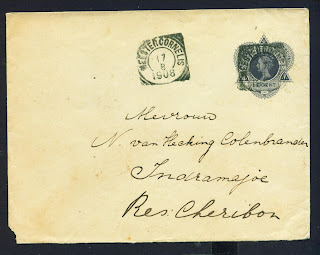 MEESTER CORNELIS
17
8
1908
Mevrouw
N. van Hecking Colenbrander
Indramajoe
Res: Cheribon